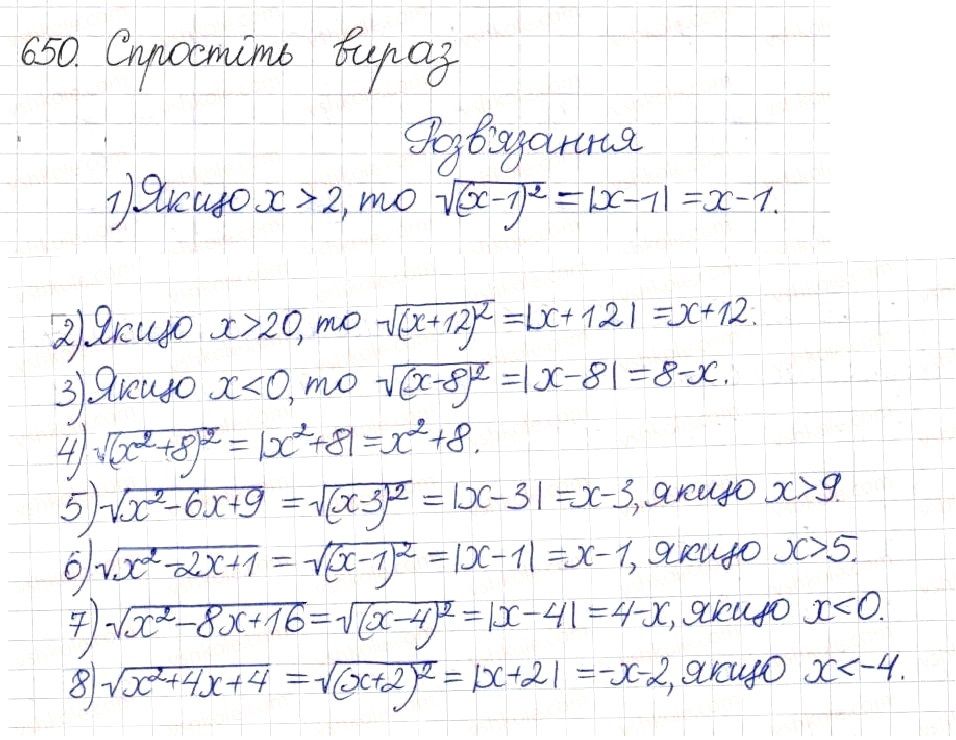 650. Спростіть вираз
Розв'язання
1) Якщо x > 2, то √(x-1)² = |x-1| = x-1.
2) Якщо x>20, то √(x+12)² = |x+12| = x+12.
3) Якщо x<0, то √(x-8)² = |x-8| = 8-x.
4) √(x²+8)² = |x²+8| = x²+8.
5) √x²-6x+9 = √(x-3)² = |x-3| = x-3, якщо x>9.
6) √x²-2x+1 = √(x-1)² = |x-1| = x-1, якщо x>5.
7) √x²-8x+16 = √(x-4)² = |x-4| = 4-x, якщо x<0.
8) √x²+4x+4 = √(x+2)² = |x+2| = -x-2, якщо x<-4.